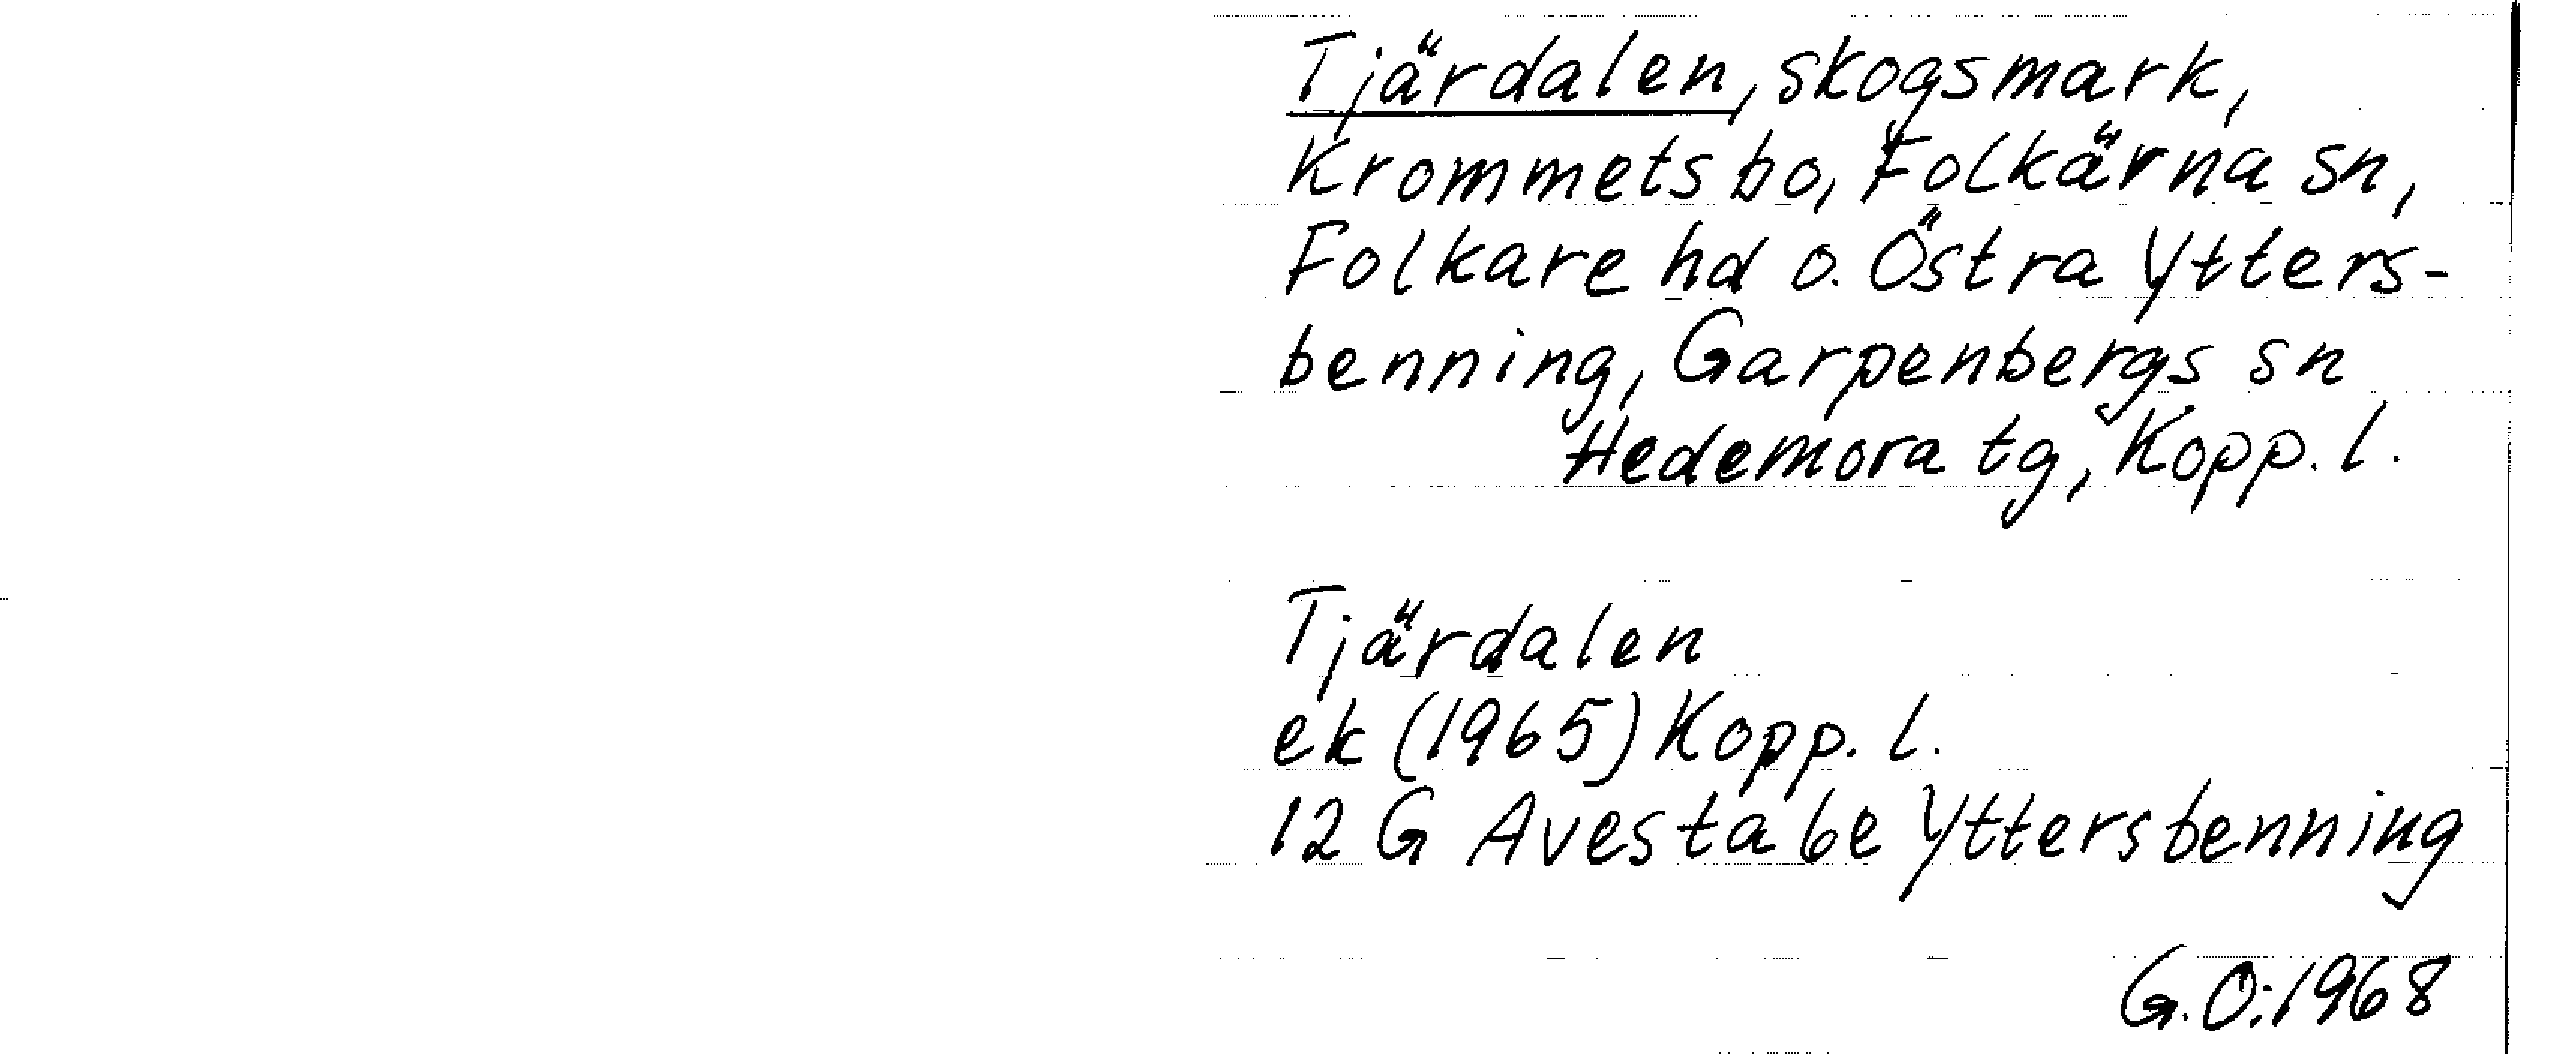 Tjärdalen, skogsmark,
Krommetsbo, Folkärna sn,
Folkare hd o. Östra Ytters-
benning, Garpenbergs sn
Hedemora tg, Kopp. l.
Tjärdalen
ek (1965) Kopp. l.
12 G Avesta 6e Yttersbenning
G.O; 1968